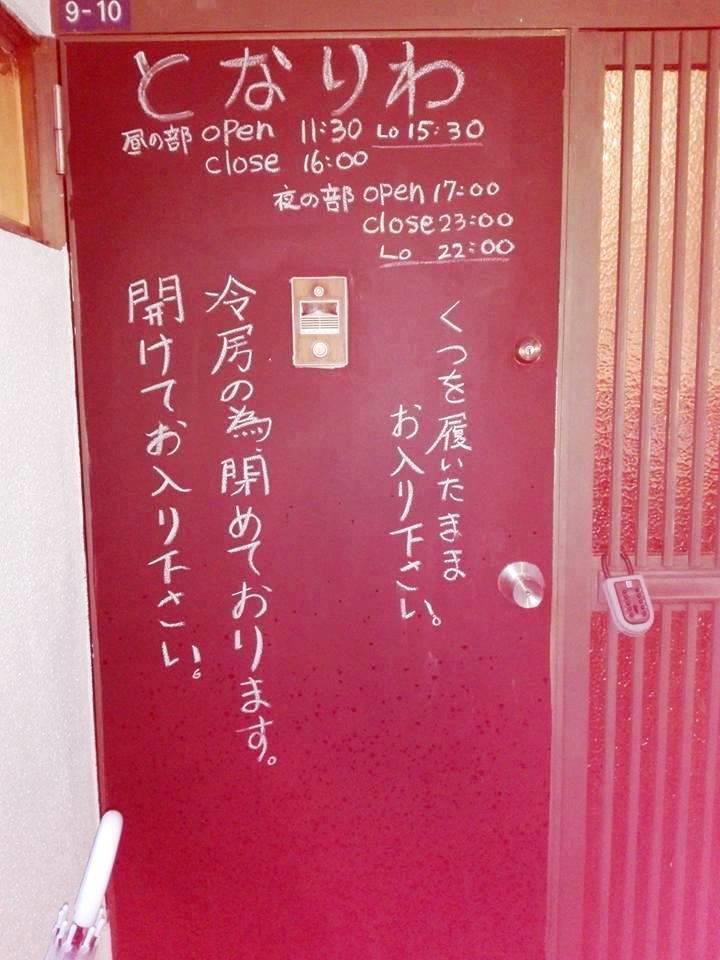 9-10
となりわ
昼の部 open 11:30 Lo 15:30
close 16:00
夜の部 open 17:00
close 23:00
Lo 22:00
くつを履いたまま
お入り下さい。
冷房の為、閉めております。
開けてお入り下さい。